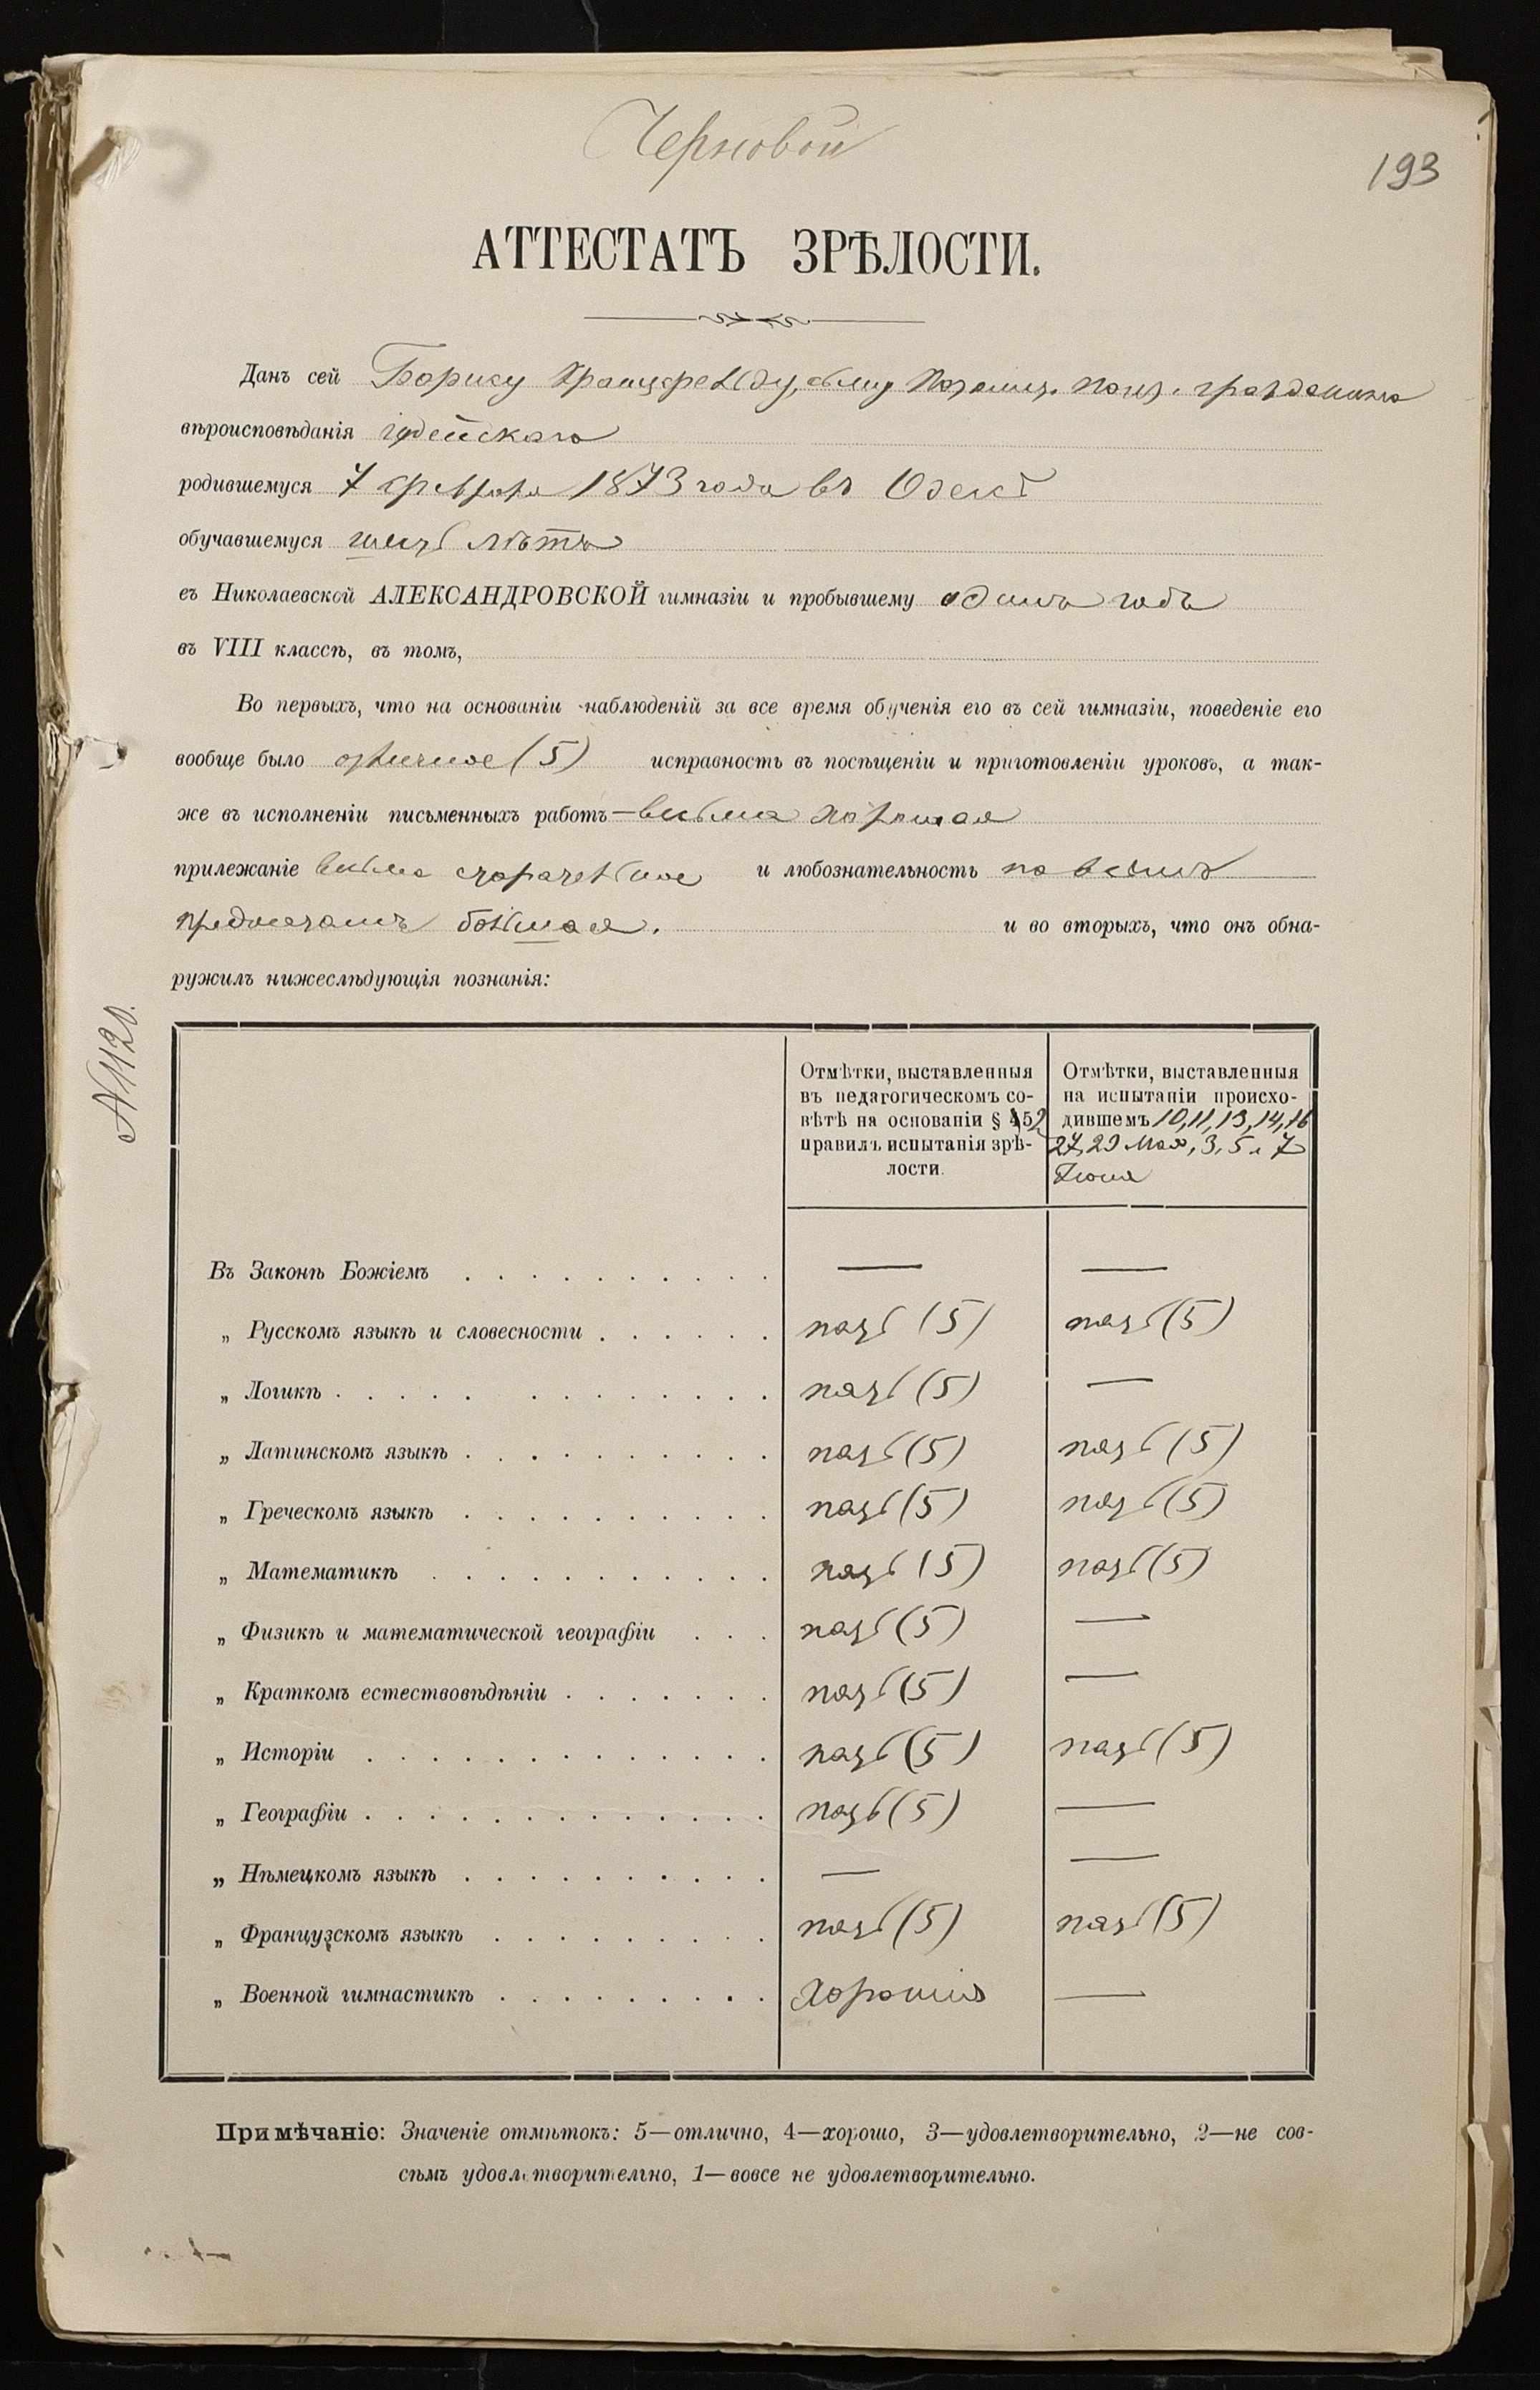 Черновой
193
АТТЕСТАТЪ ЗРѢЛОСТИ.
Данъ сей Борису Крацфельду, сыну Потомст. Почт. гражданина
вѣроисповѣданія іудейскаго
родившемуся 7 февраля 1873 года въ Одессѣ
обучавшемуся шесть лѣтъ
въ Николаевской АЛЕКСАНДРОВСКОЙ гимназіи и пробывшему одинъ годъ
въ VIII классѣ, въ томъ,
Во первыхъ, что на основаніи наблюденій за все время обученія его въ сей гимназіи, поведеніе его
вообще было отличное (5) исправность въ посѣщеніи и приготовленіи уроковъ, а так-
же въ исполненіи письменныхъ работъ — весьма хорошая
прилежаніе весьма старательное и любознательность по всѣмъ
предметамъ большая. и во вторыхъ, что онъ обна-
ружилъ нижеслѣдующія познанія:
№ 1120.
Отмѣтки, выставленныя
въ педагогическомъ со-
вѣтѣ на основаніи § 52
правилъ испытанія зрѣ-
лости.
Отмѣтки, выставленныя
на испытаніи происхо-
дившемъ 10, 11, 13, 14, 16
27, 29 Мая, 3, 5 и 7
Іюня
Въ Законѣ Божіемъ . . . . . . . . . . — —
„ Русскомъ языкѣ и словесности . . . . . . пять (5) пять (5)
„ Логикѣ . . . . . . . . . . . . . пять (5) —
„ Латинскомъ языкѣ . . . . . . . . . . пять (5) пять (5)
„ Греческомъ языкѣ . . . . . . . . . . пять (5) пять (5)
„ Математикѣ . . . . . . . . . . . пять (5) пять (5)
„ Физикѣ и математической географіи . . . пять (5) —
„ Краткомъ естествовѣдѣніи . . . . . . . пять (5) —
„ Исторіи . . . . . . . . . . . . . пять (5) пять (5)
„ Географіи . . . . . . . . . . . . . пять (5) —
„ Нѣмецкомъ языкѣ . . . . . . . . . . — —
„ Французскомъ языкѣ . . . . . . . . . пять (5) пять (5)
„ Военной гимнастикѣ . . . . . . . . . Хорошія —
Примѣчаніе: Значеніе отмѣтокъ: 5—отлично, 4—хорошо, 3—удовлетворительно, 2—не сов-
сѣмъ удовлетворительно, 1—вовсе не удовлетворительно.